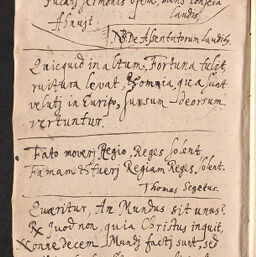 Fucati sermonis opem, mens conscia
laudis,
Abnuit.
NB De Assentatorum laudib9
Quicquid in altum, Fortuna tulit
ruitura levat, & omnia, quæ sunt
veluti in Euripo, sursum deorsum
vertuntur.
Fato moveri Regio, Reges solent
Famam tueri Regiam Reges solent.
Thomas Segetus.
Quæritur, An Mundus sit unus?
quod non, quia Christus inquit,
Nonne decem Mundi facti sunt, sed